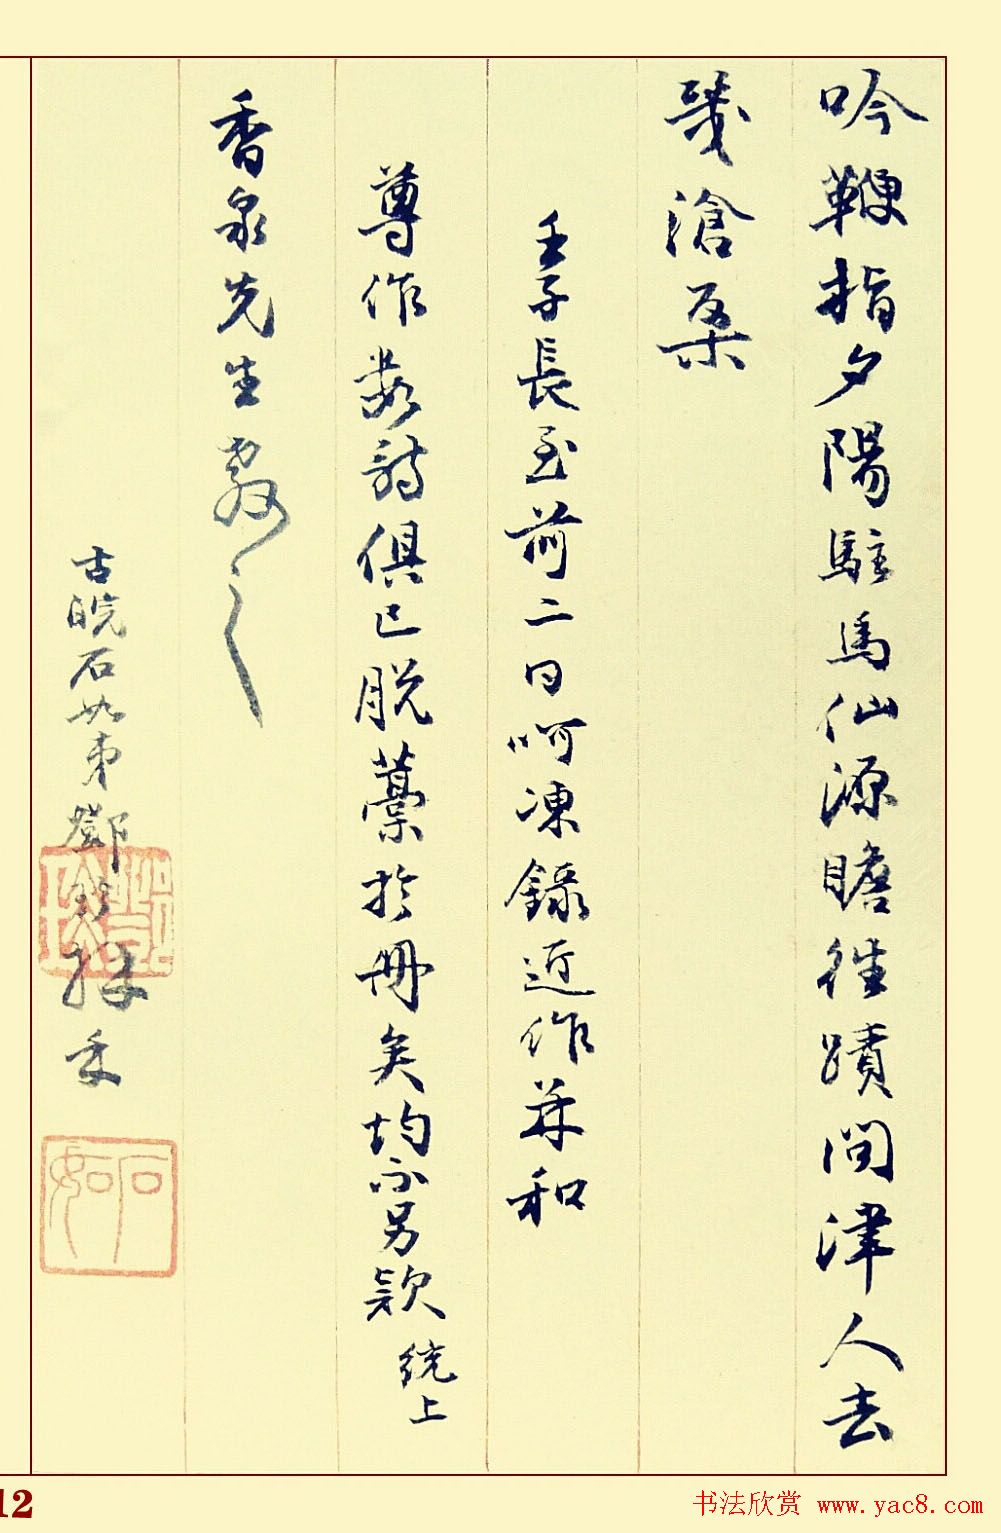 吟鞭指夕陽駐馬仙源瞻往蹟問津人去
幾滄桑
壬子長至前二日呵凍錄近作并和
尊作數詩俱已脫藁於冊矣均不另款 統上
香泉先生教之
古皖石如弟鄧
石如
12
书法欣赏 www.yac8.com